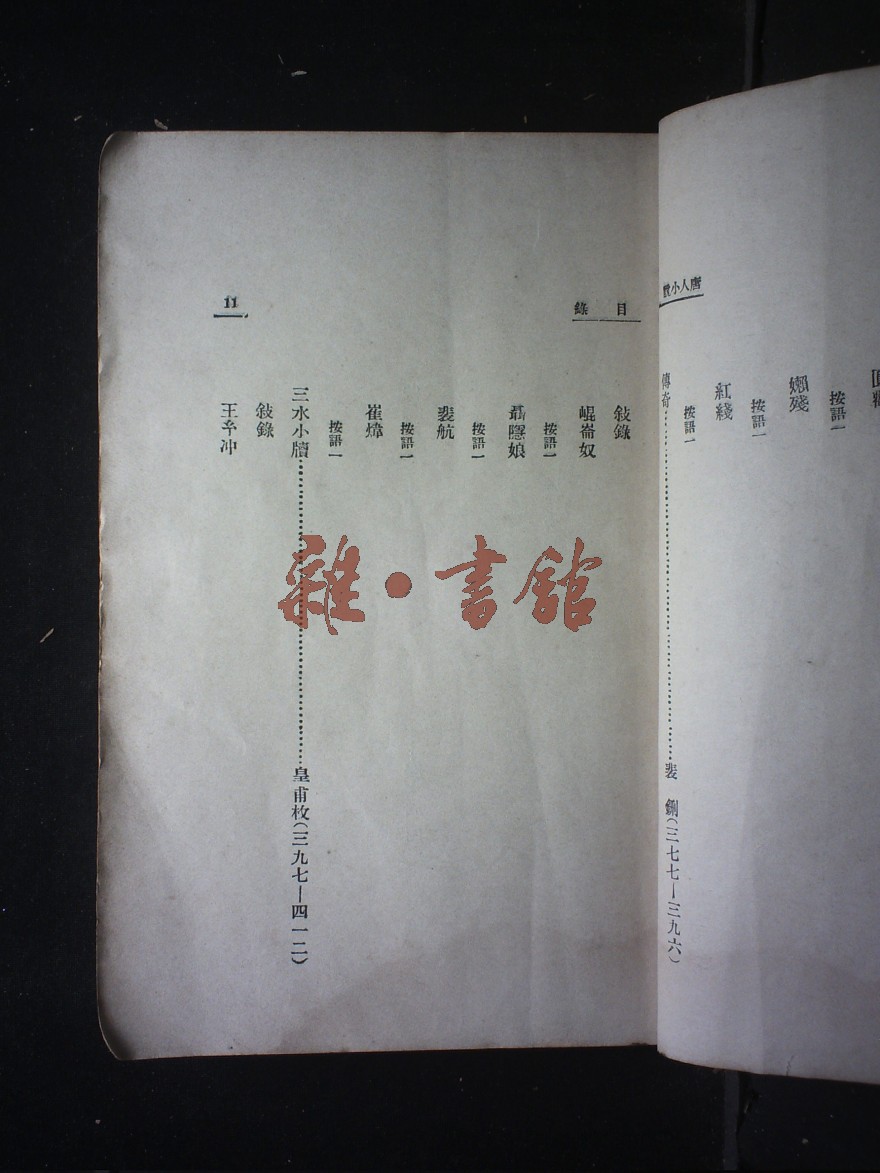 唐人小說
按語一
嬾殘
按語一
紅綫
按語一
傳奇……裴 鉶(三七七—三九六)
目 錄
敍錄
崐崙奴
按語一
聶隱娘
按語一
裴航
按語一
崔煒
按語一
三水小牘……皇甫枚(三九七—四一二)
敍錄
王知冲
11
雜·書館